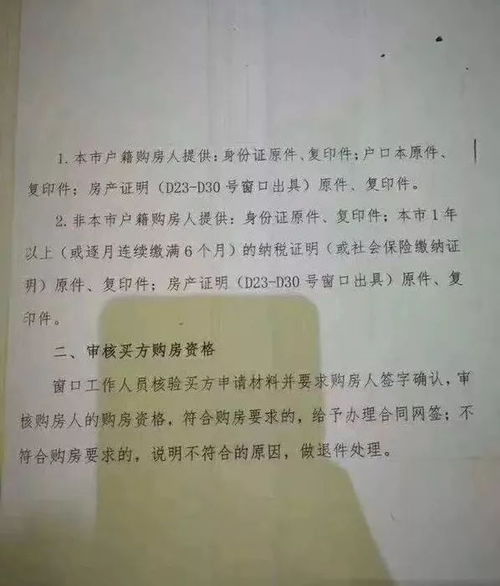 1.本市户籍购房人提供:身份证原件、复印件;户口本原件、
复印件;房产证明(D23-D30 号窗口出具)原件、复印件。
2.非本市户籍购房人提供:身份证原件、复印件;本市1年
以上(或逐月连续缴满6个月)的纳税证明(或社会保险缴纳证
明)原件、复印件;房产证明(D23-D30 号窗口出具)原件、复
印件。
二、审核买方购房资格
窗口工作人员核验买方申请材料并要求购房人签字确认,审
核购房人的购房资格,符合购房要求的,给予办理合同网签;不
符合购房要求的,说明不符合的原因,做退件处理。